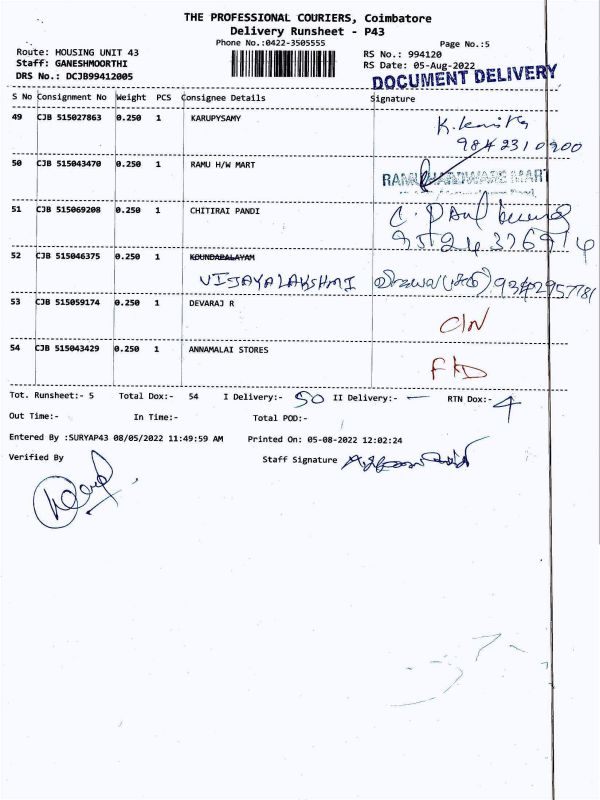 THE PROFESSIONAL COURIERS, Coimbatore
Delivery Runsheet - P43
Phone No.:0422-3505555
Page No.:5
Route: HOUSING UNIT 43
RS No.: 994120
Staff: GANESHMOORTHI
RS Date: 05-Aug-2022
DRS No.: DCJB99412005
DOCUMENT DELIVERY
S No Consignment No Weight PCS Consignee Details Signature
49 CJB 515027863 0.250 1 KARUPYSAMY
9842310900
50 CJB 515043470 0.250 1 RAMU H/W MART
RAMU HARDWARE MART
51 CJB 515069208 0.250 1 CHITIRAI PANDI
9524376914
52 CJB 515046375 0.250 1 KOUNDABALAYAM
VIJAYALAKSHMI 9342957781
53 CJB 515059174 0.250 1 DEVARAJ R
C/N
54 CJB 515043429 0.250 1 ANNAMALAI STORES
Tot. Runsheet:- 5 Total Dox:- 54 I Delivery:- 50 II Delivery:- — RTN Dox:- 4
Out Time:- In Time:- Total POD:-
Entered By :SURYAP43 08/05/2022 11:49:59 AM Printed On: 05-08-2022 12:02:24
Verified By Staff Signature